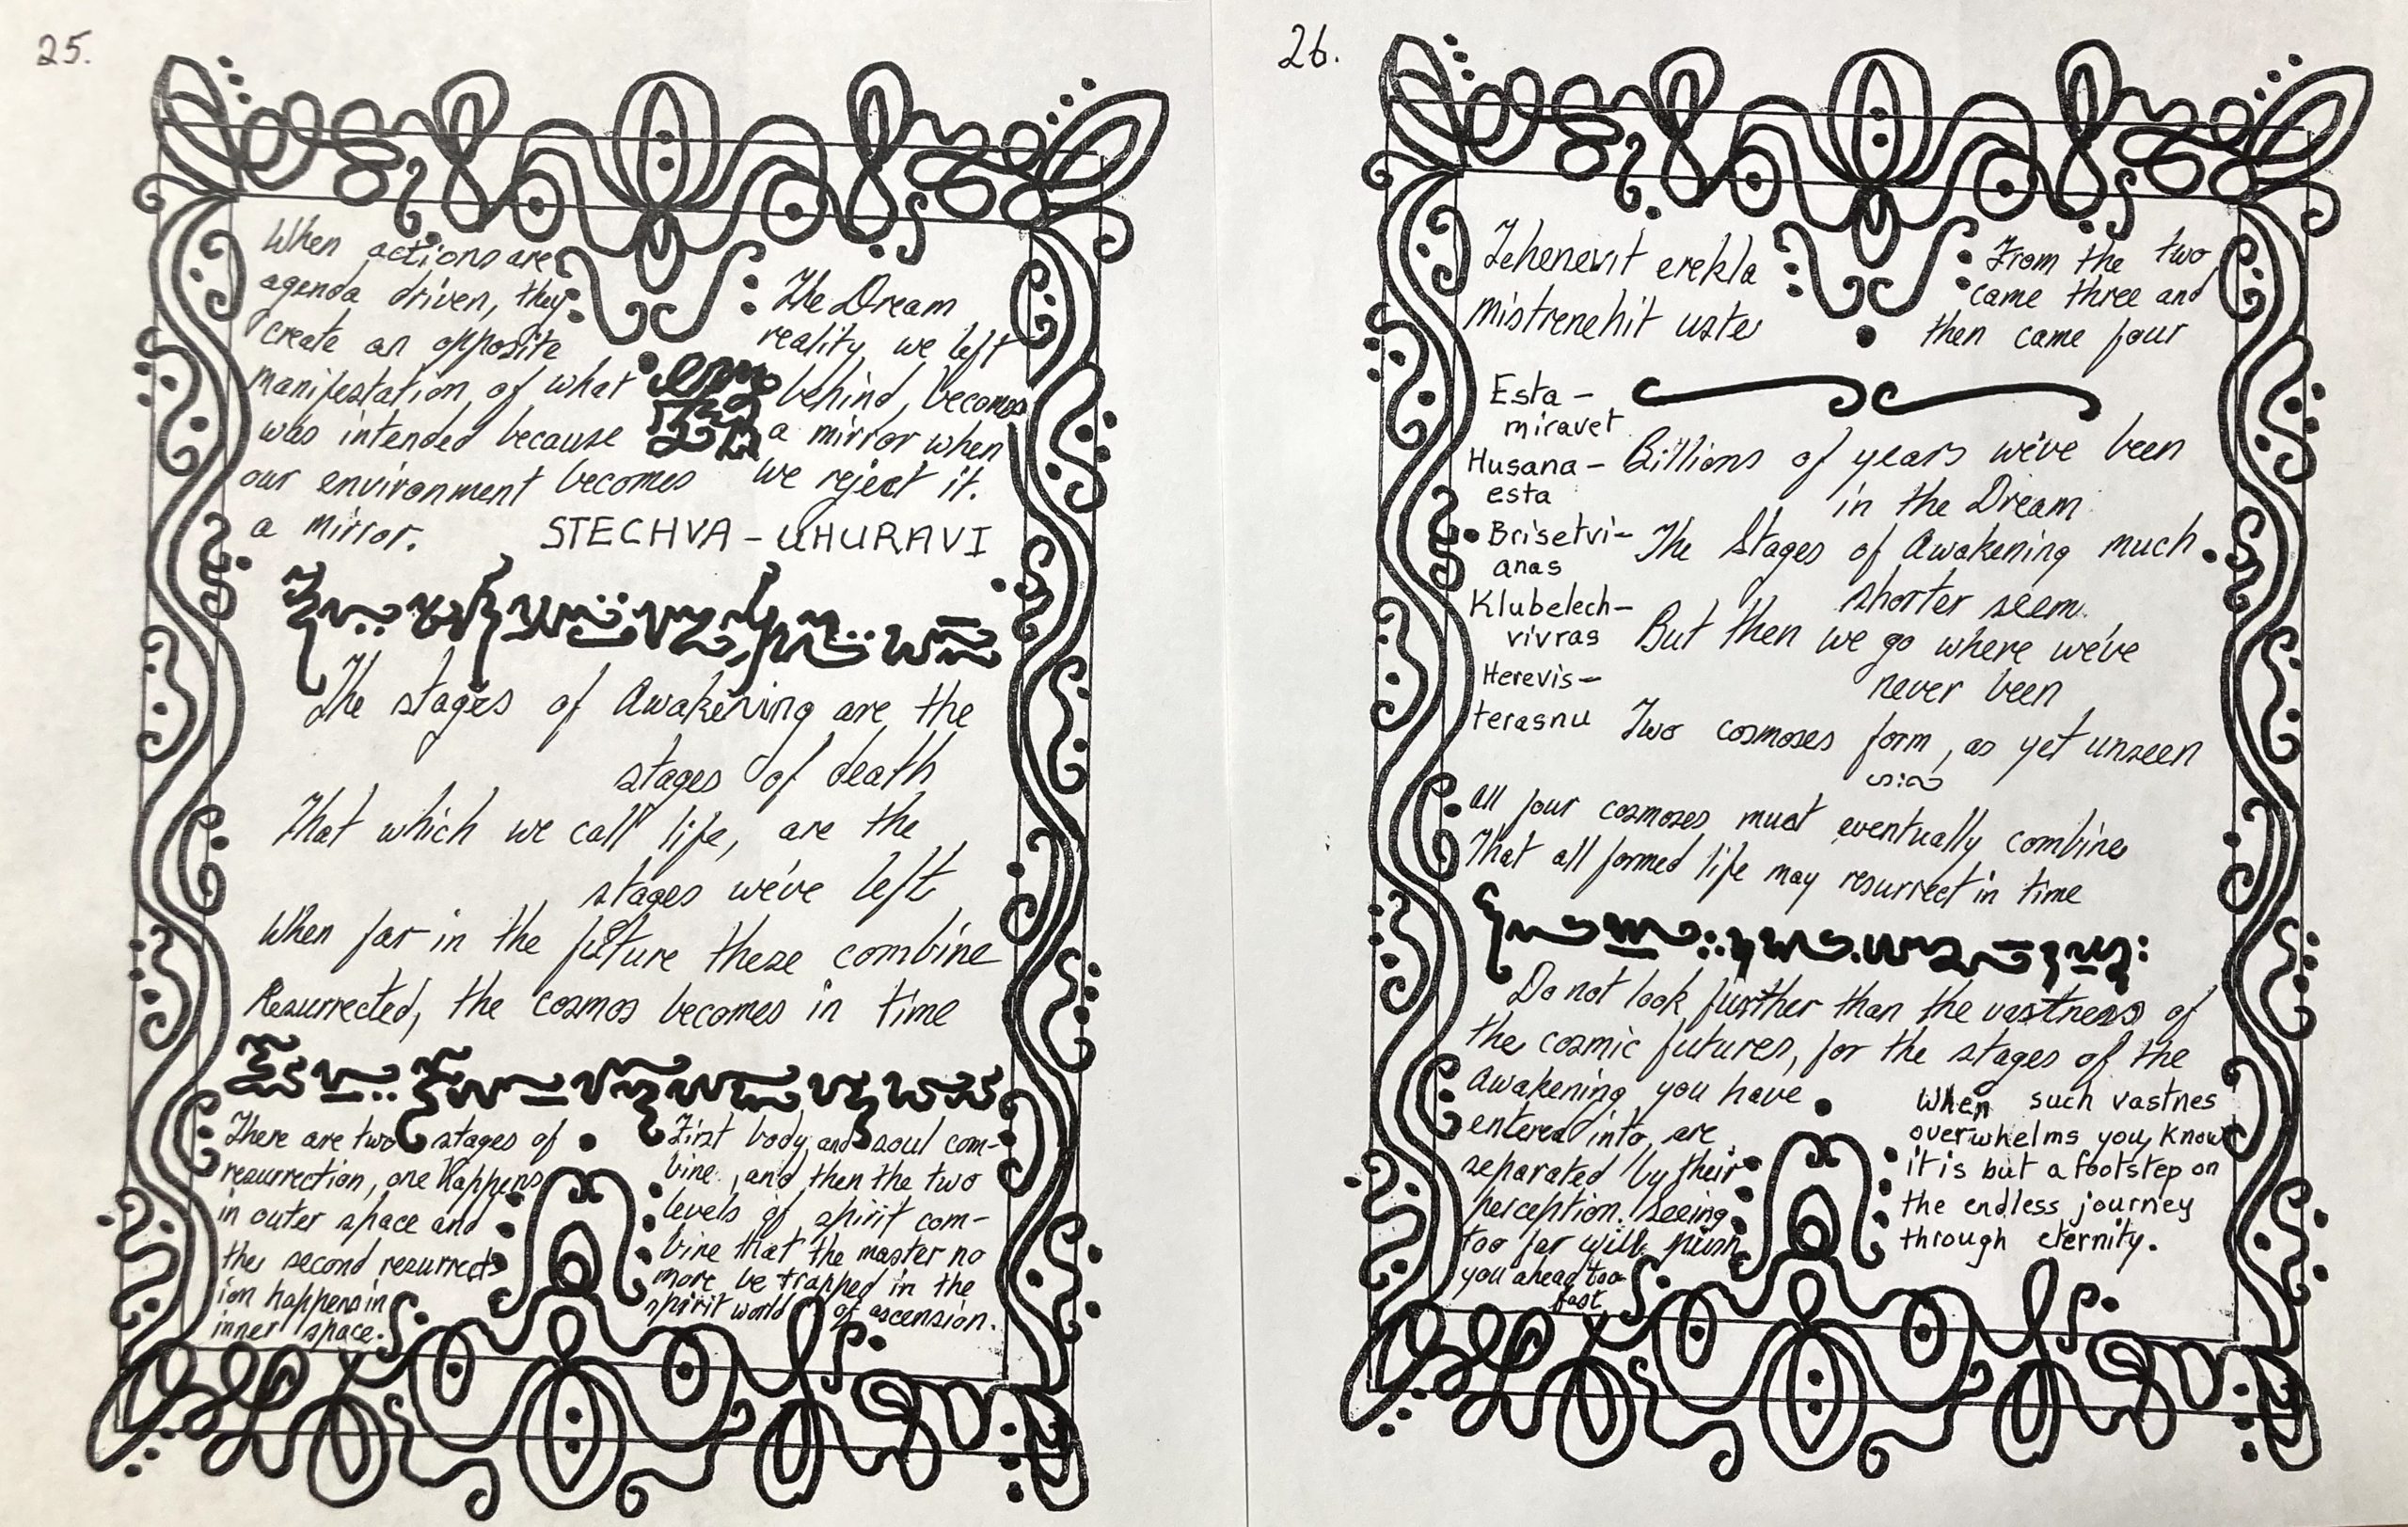 25.
When actions are
agenda driven, they
create an opposite
manifestation, of what
was intended because
our environment becomes
a mirror.
The Dream
reality, we left
behind, becomes
a mirror when
we reject it.
STECHVA - UHURAVI
The stages of Awakening are the
stages of death
That which we call life, are the
stages we've left
When far in the future these combine
Resurrected, the cosmos becomes in time
There are two stages of
resurrection, one happens
in outer space and
the second resurrect-
ion happens in
inner space.
First body and soul com-
bine, and then the two
levels of spirit com-
bine that the master no
more be trapped in the
spirit world of ascension.
26.
erekla
mistrenehit uste
From the two
came three and
then came four
Esta -
miravet
Husana -
esta
Brisetvi-
anas
Klubelech-
vivras
Herevis-
terasnu
Billions of years we've been
in the Dream
The Stages of Awakening much
shorter seem.
But then we go where we've
never been
Two cosmoses form, as yet unseen
All four cosmoses must eventually combine
That all formed life may resurrect in time
Do not look further than the vastness of
the cosmic futures, for the stages of the
Awakening you have
entered into, are
separated by their
perception. Seeing
too far will push
you ahead too
fast
When such vastnes
overwhelms you, know
it is but a footstep on
the endless journey
through eternity.